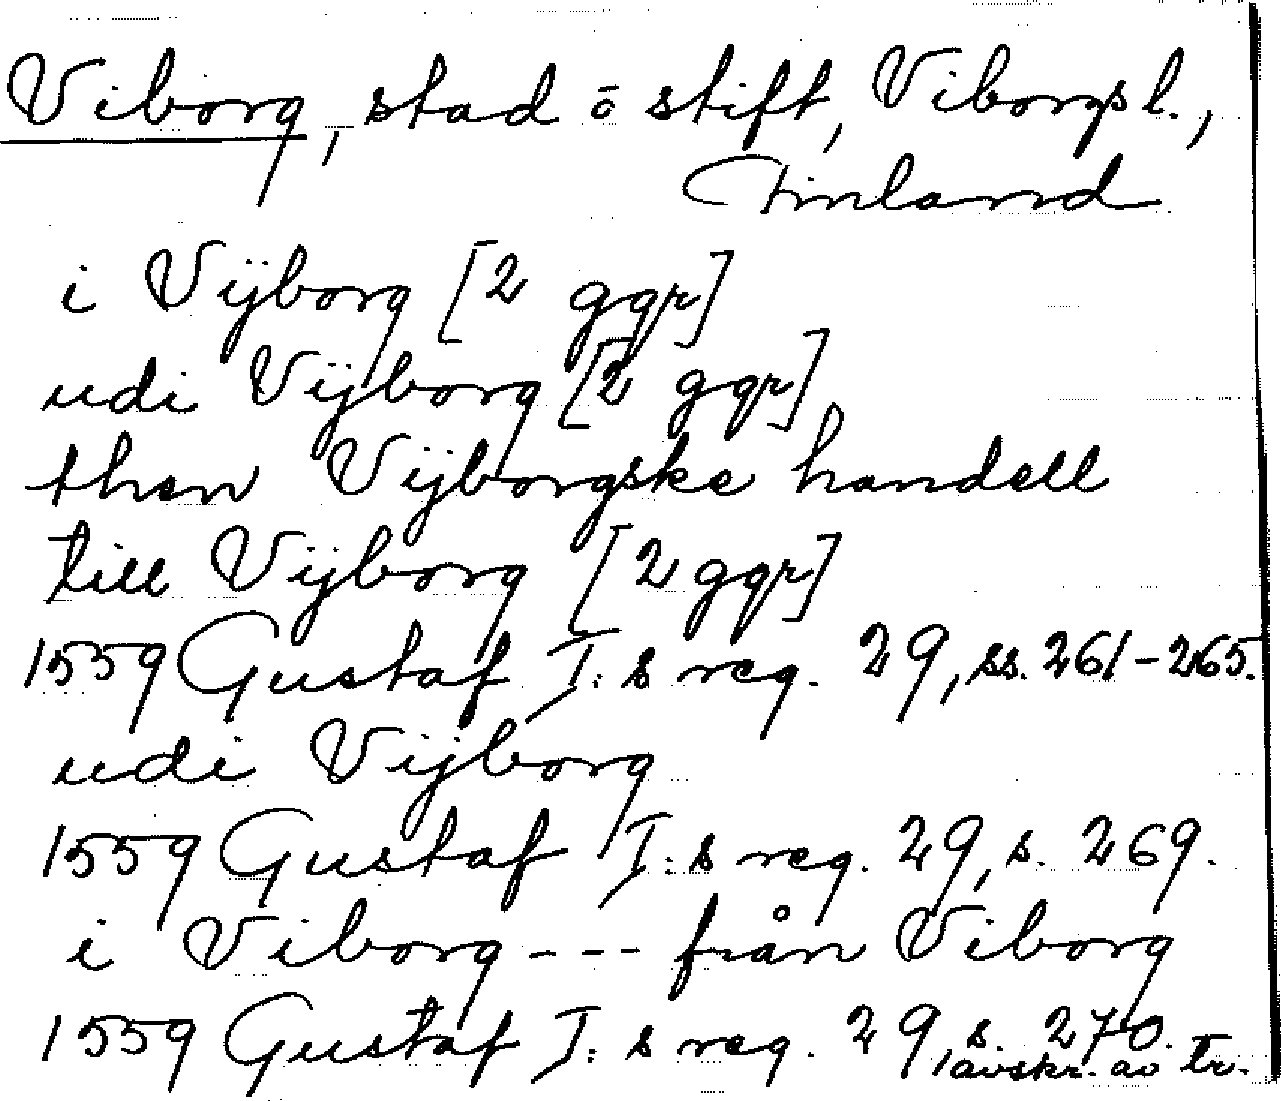 Viborg, stad o stift, Viborgs l.,
Finland
i Vijborg [2 ggr]
udi Vijborg [2 ggr]
then Vijborgske handell
till Vijborg [2 ggr]
1559 Gustaf I:s reg. 29, ss. 261-265.
udi Vijborg
1559 Gustaf I:s reg. 29, s. 269.
i Viborg --- från Viborg
1559 Gustaf I:s reg. 29, s. 270.
avskr. av tr.